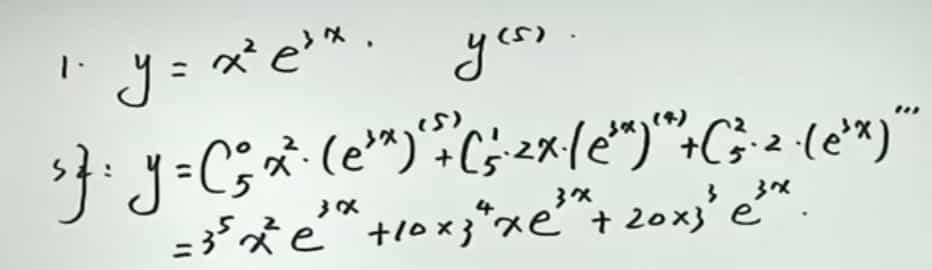 1. y = x² e³ˣ. y⁽⁵⁾.
解: y = C₅⁰ x²·(e³ˣ)⁽⁵⁾ + C₅¹·2x·(e³ˣ)⁽⁴⁾ + C₅²·2·(e³ˣ)'''
= 3⁵ x² e³ˣ + 10×3⁴ x e³ˣ + 20×3³ e³ˣ.